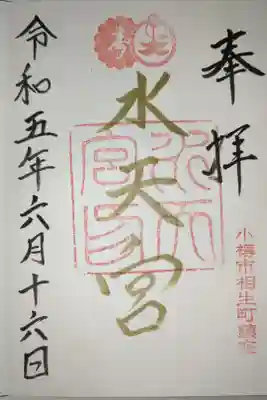 奉拝
小樽市相生町鎮座
水天宮
令和五年六月十六日